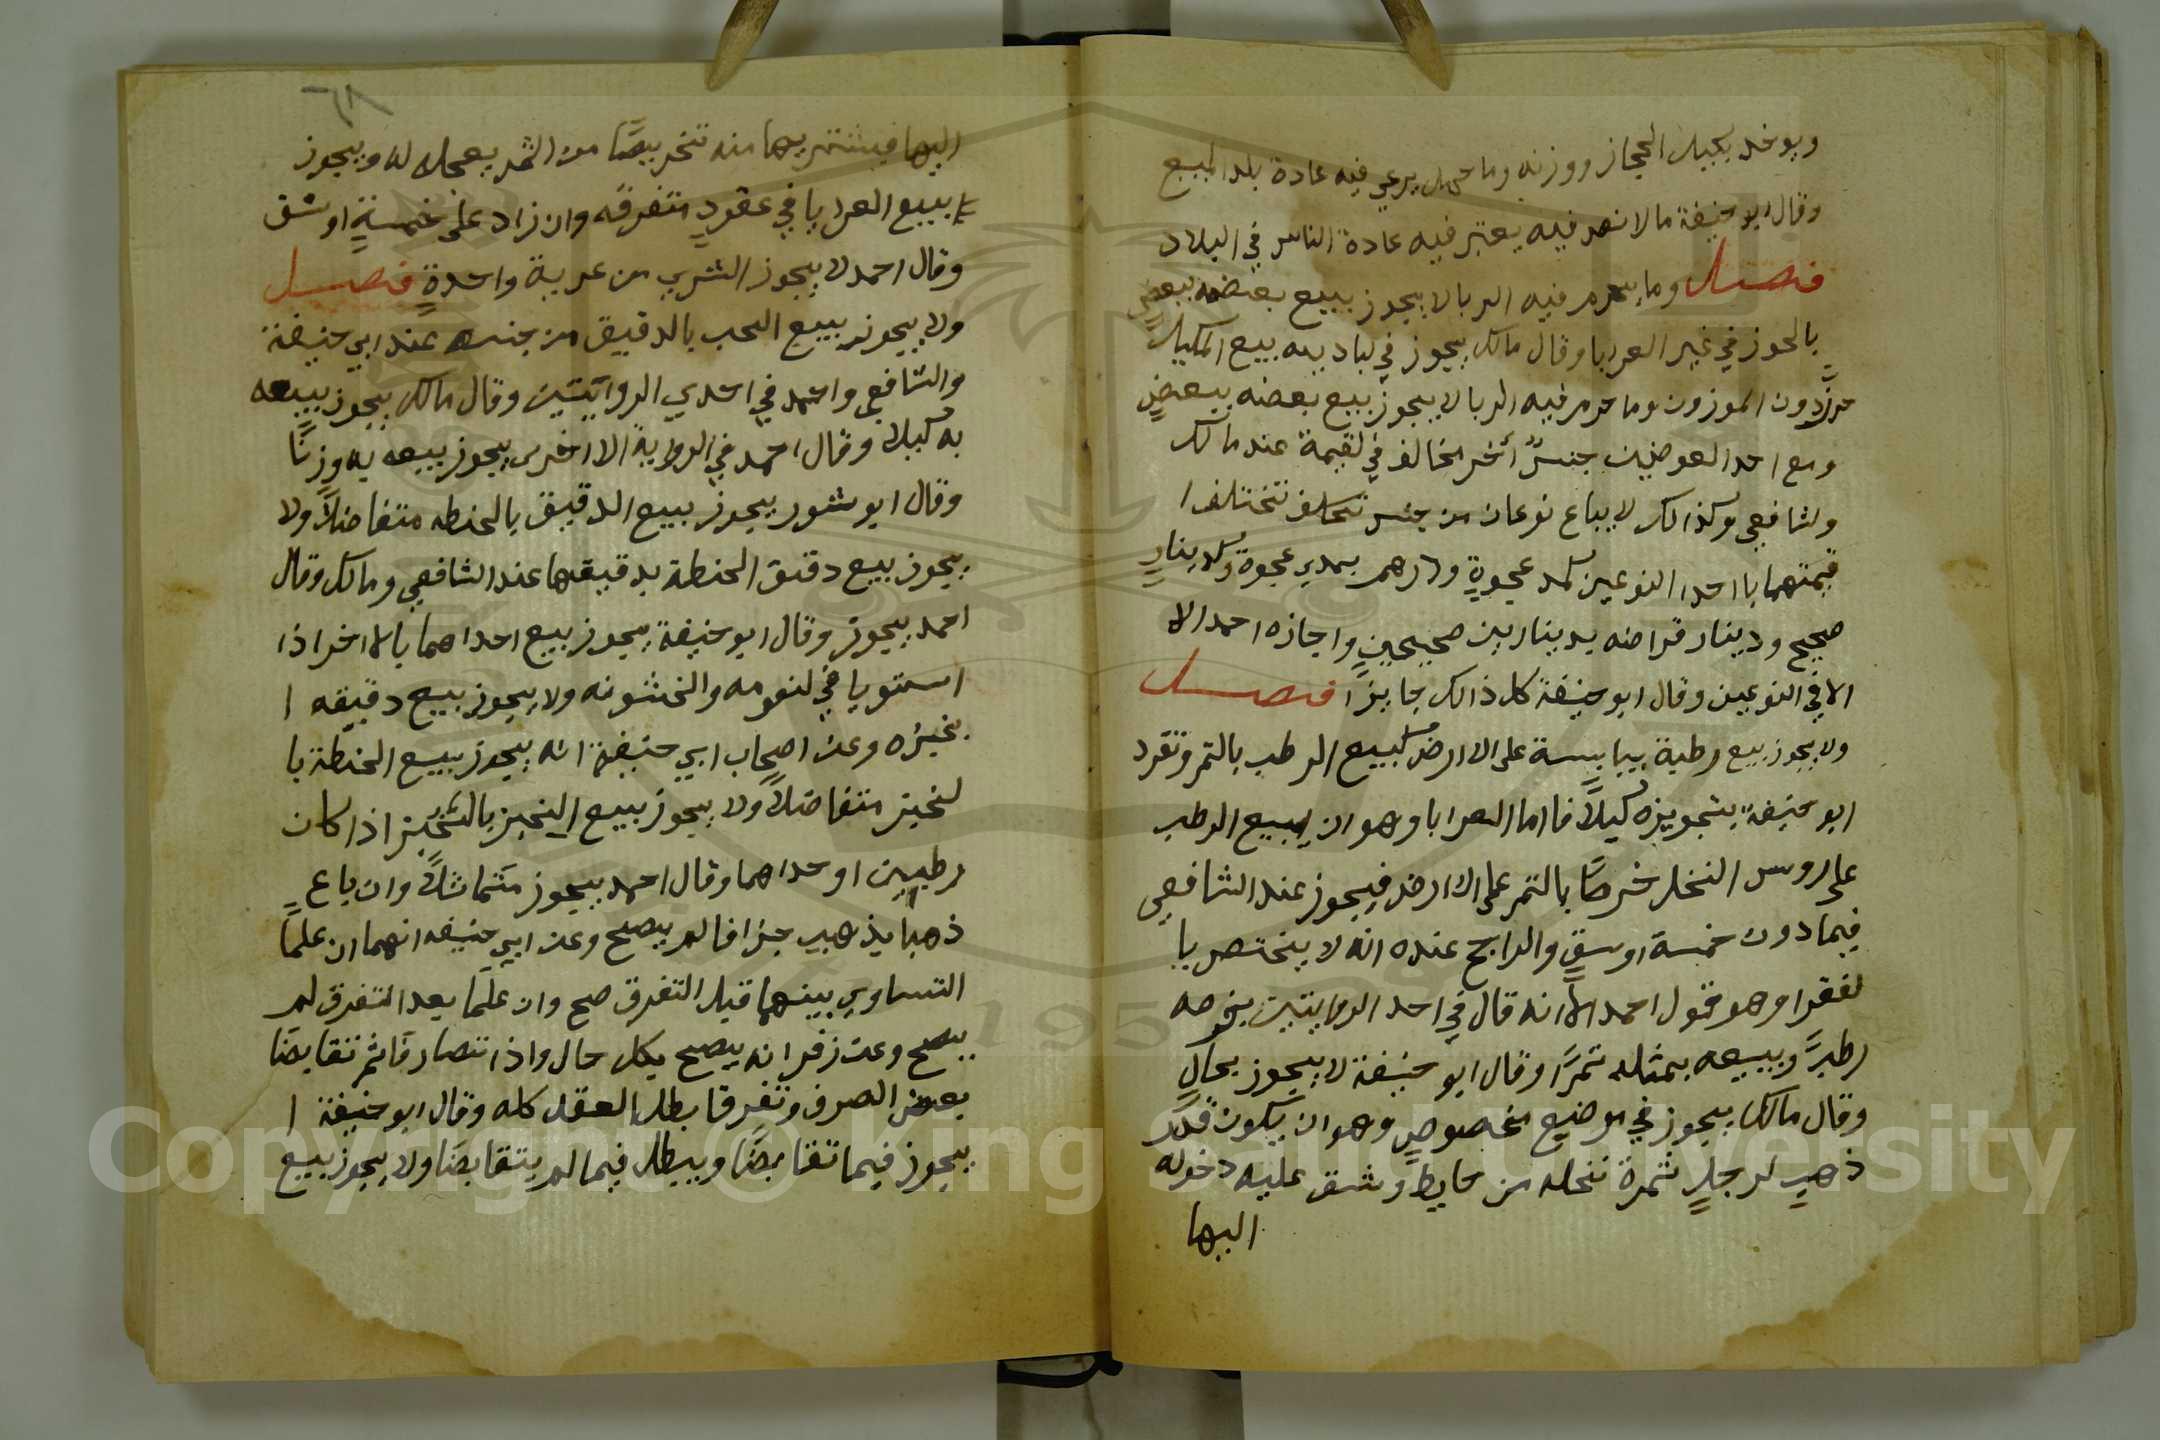 ويوخد بكيل الحجاز ووزنه وما جهل يرعي فيه عادة بلد المبيع
وقال ابو حنيفة مالا نص فيه يعتبر فيه عادة الناس في البلاد
فصل وما يحرم فيه الربا لا يجوز بيبع بعضه ببعضٍ
بالحوز في غير العرايا وقال مالك يجوز في لباديه بيع المكيل
حرزًا دون الموزون وما حرم فيه الربا لا يجوز بيع بعضه ببعضٍ
ومع احد العوضين جنسٌ أخر مخالف في لقيمة عند مالك
ولشافعي وكذالك لا يباع نوعان من جنس تختلفا
قيمتهما با احدا النوعين كمد عجوةٍ ودرهم بمدي عجوة وكدينارٍ
صحيح ودينار قراضه بدينارين صحيحينٍ واجازه احمد الا
الا في النوعين وقال ابو حنيفة كل ذالك جايزا فصل
ولا يجوز بيع رطبة بيابسة على الارض كبيع الرطب بالتمر وتفرد
ابو حنيفة بتجويزه كيلاً فاما العرايا وهو ان يبيع الرطب
على روس النخل خرصًا بالتمر على الارض فيجوز عند الشافعي
فيما دون خمسة اوسقٍ والراجح عنده انه لا يختص با
لفقرا وهو قول احمد الا انه قال في احد الروايتين يخرصه
رطبًا ويبيعه بمثله تمرًا وقال ابو حنيفة لا يجوز بحالٍ
وقال مالك يجوز في موضيع مخصوصٍ وهو ان يكون قد
ذهب لرجلٍ ثمرة نخله من حايط وشق عليه دخوله
اليها
٦٨
اليها فيشتريها منه تخريصًا من الثمر يعجله له ويجوز
بيبع العرايا في عقودٍ متفرقه وان زاد على خمسةٍ اوسق
وقال احمد لا يجوز الشري من عرية واحدةٍ فصل
ولا يجوز بيبع الحب بالدقيق من جنسه عند ابي حنيفة
والشافعي واحمد في احدي الروايتين وقال مالك يجوز بيبعه
به كيلا وقال احمد في الرواية الاخرى يجوز بيبعه به وزنًا
وقال ابو ثور يجوز بيبع الدقيق بالحنطه متفاضلاً ولا
يجوز بيع دقيق الحنطة بدقيقها عند الشافعي ومالك وقال
احمد بيجوز وقال ابو حنيفة يجوز بيع احداهما بالاخر اذا
استويا في لنعومه والخشونه ولا يجوز بيبع دقيقه ا
بخبزه وعن اصحاب ابي حنيفة انه يجوز بيبع الحنطة با
لخبز متفاضلاً ولا يجوز بيبع الخبز بالخبز اذا كان
رطبين او حداهما وقال احمد يجوز متماثلاً وان باع
ذهبا بذهب جزافا لم يصح وعن ابي حنيفه انهما ان علما
التساوي بينهما قبل التفرق صح وان علما بعد التفرق لم
يصح وعن زفر انه يصح بكل حال واذا تصارفا ثم تقابضا
بعض الصرف وتفرقا بطل العقد كله وقال ابو حنيفة ا
يجوز فيما تقابضًا ويبطل فيما لم يتقابضا ولا يجوز بيبع
Copyright © King Saud University
1957